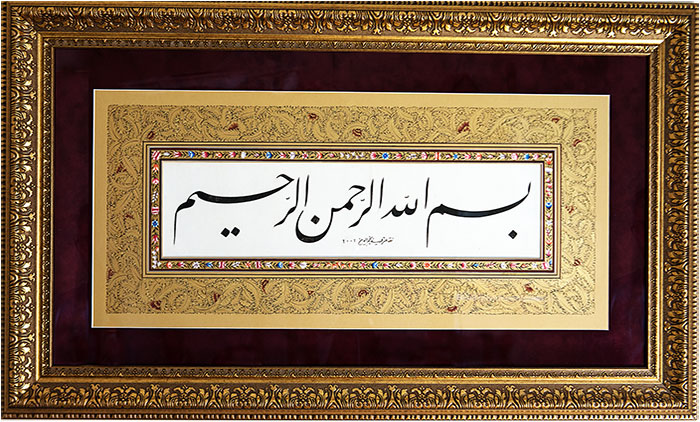 بسم الله الرحمن الرحيم
٢٠٠٢